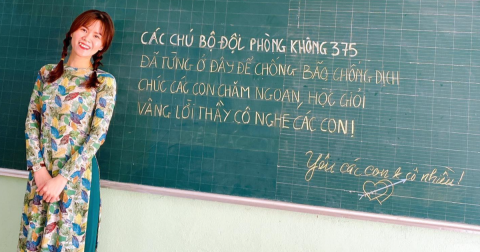 CÁC CHÚ BỘ ĐỘI PHÒNG KHÔNG 375
ĐÃ TỪNG Ở ĐÂY ĐỂ CHỐNG BÃO CHỐNG DỊCH
CHÚC CÁC CON CHĂM NGOAN, HỌC GIỎI
VÂNG LỜI THẦY CÔ NGHE CÁC CON!
Yêu các con k số nhiều!